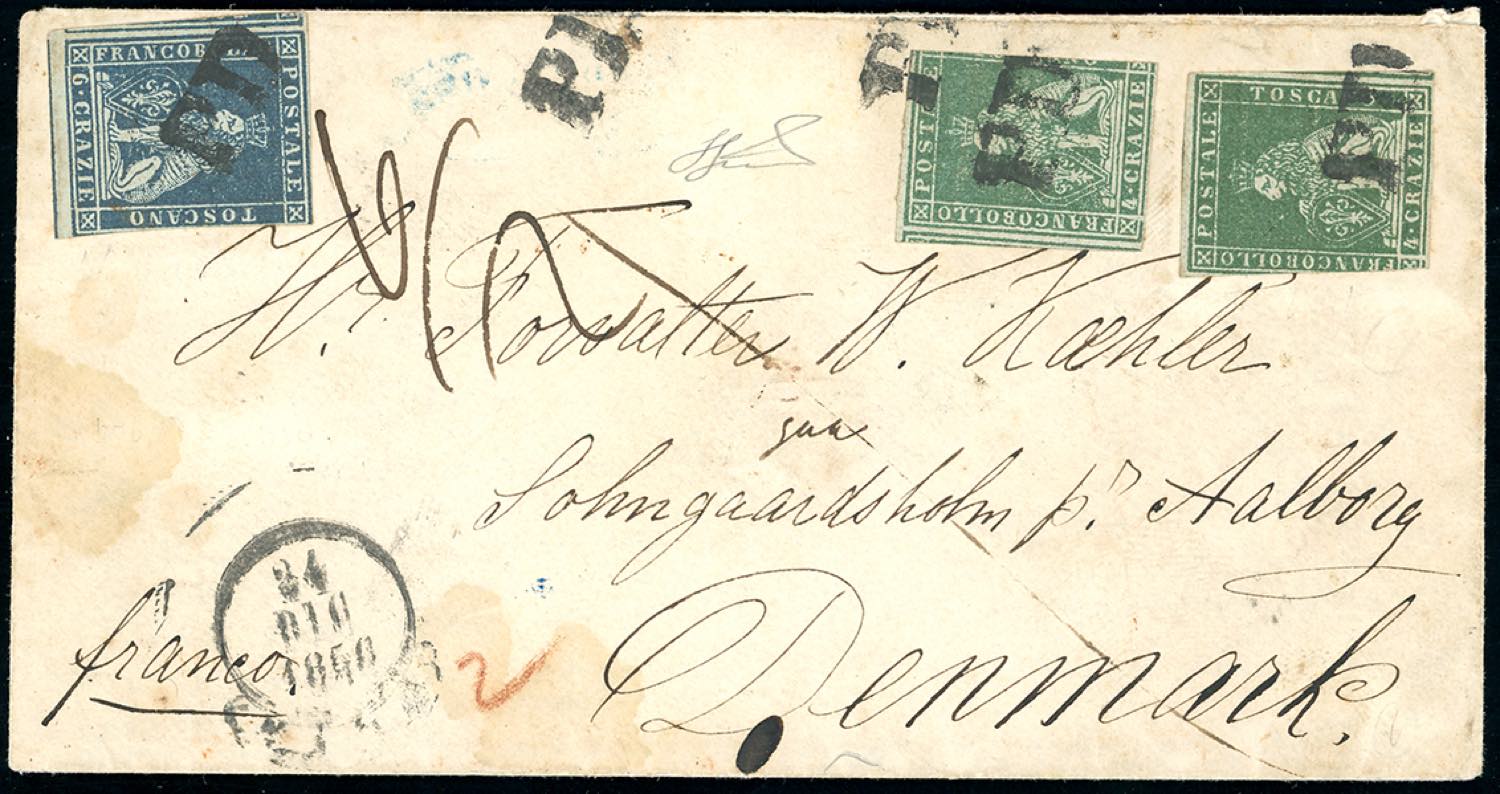 FRANCOBOLLO POSTALE TOSCANO 6·CRAZIE
PD
PD
PD
POSTALE FRANCOBOLLO 4·CRAZIE
PD
TOSCANO POSTALE FRANCOBOLLO 4·CRAZIE
PD
Hr. Forvalter W. Kæhler
paa
Sohngaardsholm pr. Aalborg
Denmark.
franco.
24
DIC
1856
2